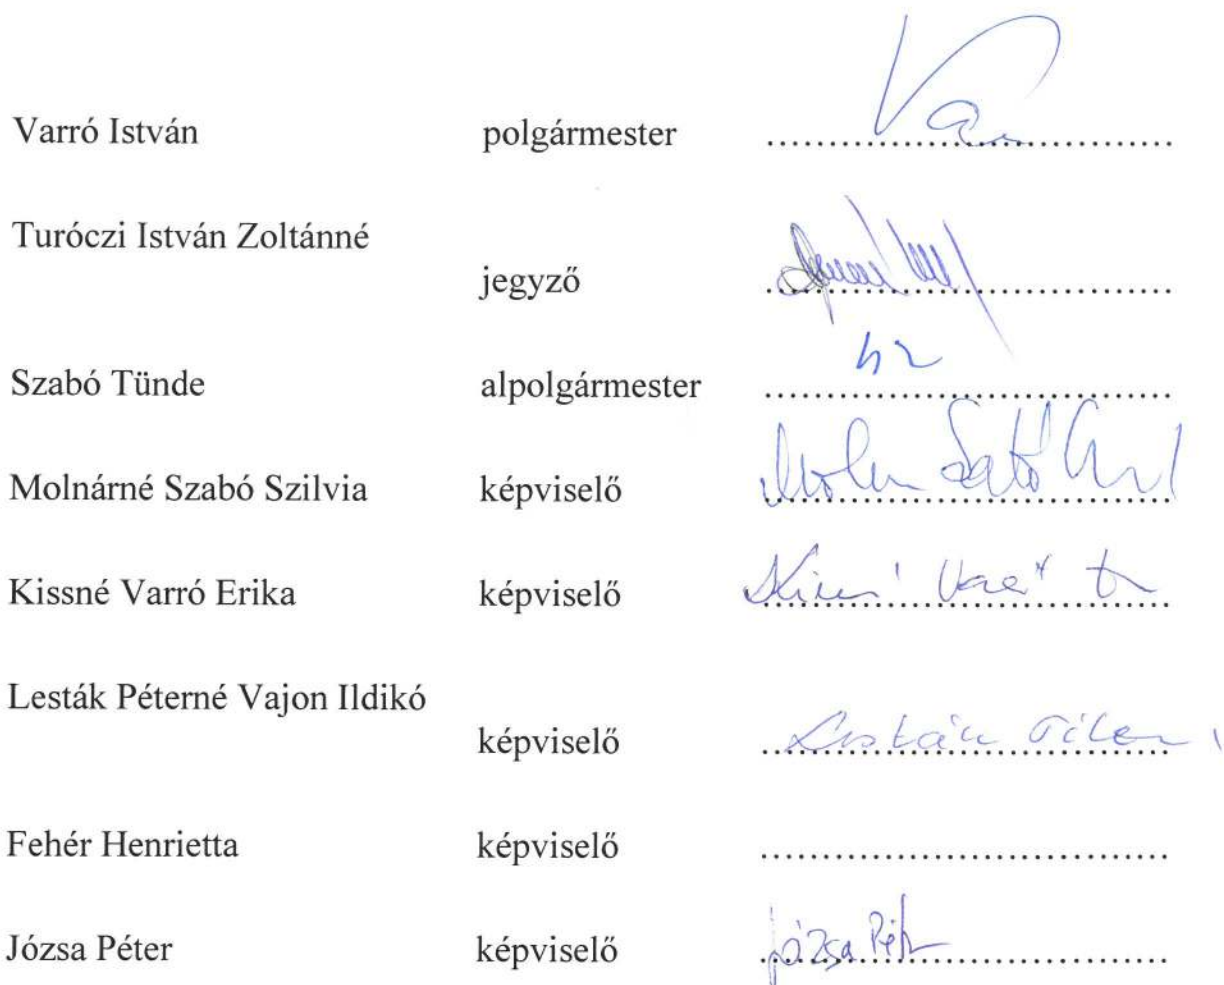 Varró István polgármester ..............................
Turóczi István Zoltánné
jegyző ..............................
Szabó Tünde alpolgármester ..............................
Molnárné Szabó Szilvia képviselő ..............................
Kissné Varró Erika képviselő ..............................
Lesták Péterné Vajon Ildikó
képviselő ..............................
Fehér Henrietta képviselő ..............................
Józsa Péter képviselő Józsa Péter